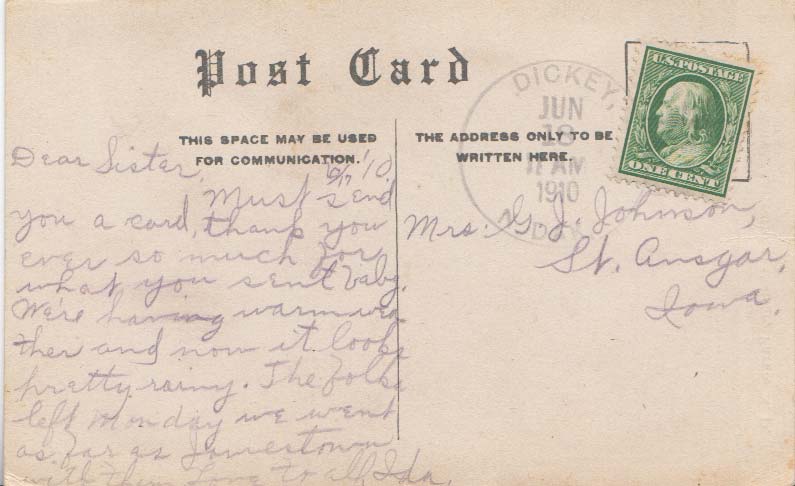 Post Card
THIS SPACE MAY BE USED
FOR COMMUNICATION.
THE ADDRESS ONLY TO BE
WRITTEN HERE.
DICKEY,
JUN
18
11 AM
1910
N. DAK.
U.S. POSTAGE
ONE CENT
Dear Sister, 6/17 '10.
Must send
you a card, thank you
ever so much for
what you sent baby.
We're having warm wea
ther and now it looks
pretty rainy. The folks
left Monday we went
as far as Jamestown
with them Love to all, Ida.
Mrs. G. J. Johnson,
St. Ansgar,
Iowa.